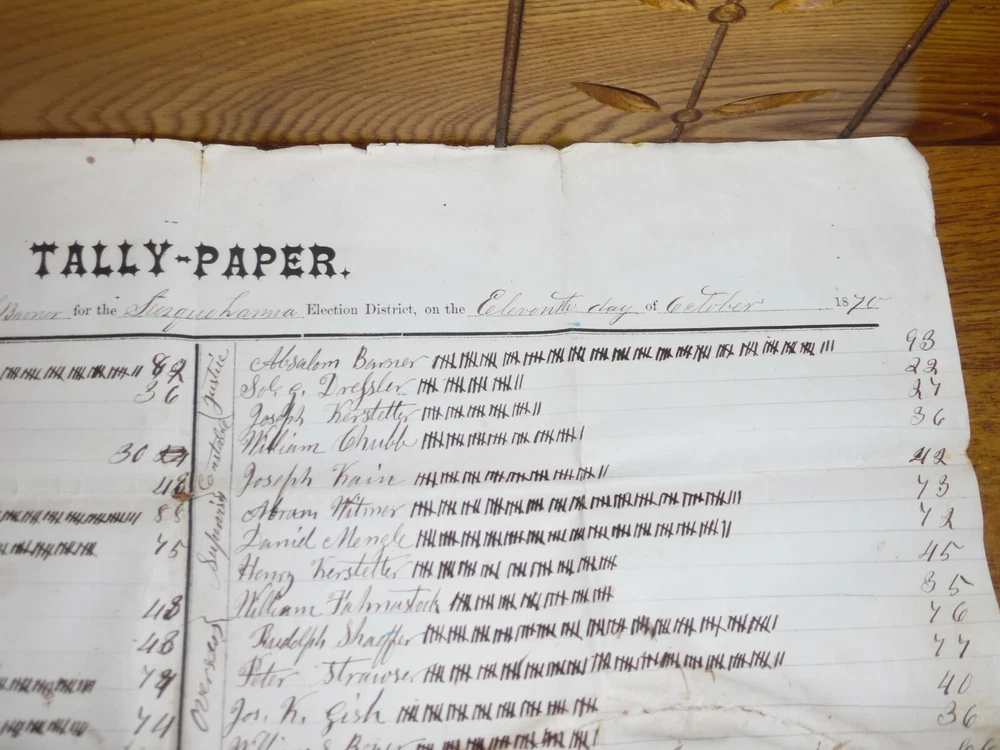 TALLY-PAPER.
Barner for the Susquehanna Election District, on the Eleventh day of October 1870
82 Justic Absalom Barner 93
36 Sol. G. Dressler 22
Joseph Kerstetter 27
William Chubb 36
30
48 Joseph Kain 42
88 Abram Witmer 73
75 Daniel Mengle 72
Henry Kerstetter 45
48 William Fahnastock 35
48 Overseers Rudolph Shaffer 76
79 Peter Strawser 77
74 Jos. K. Gish 40
36